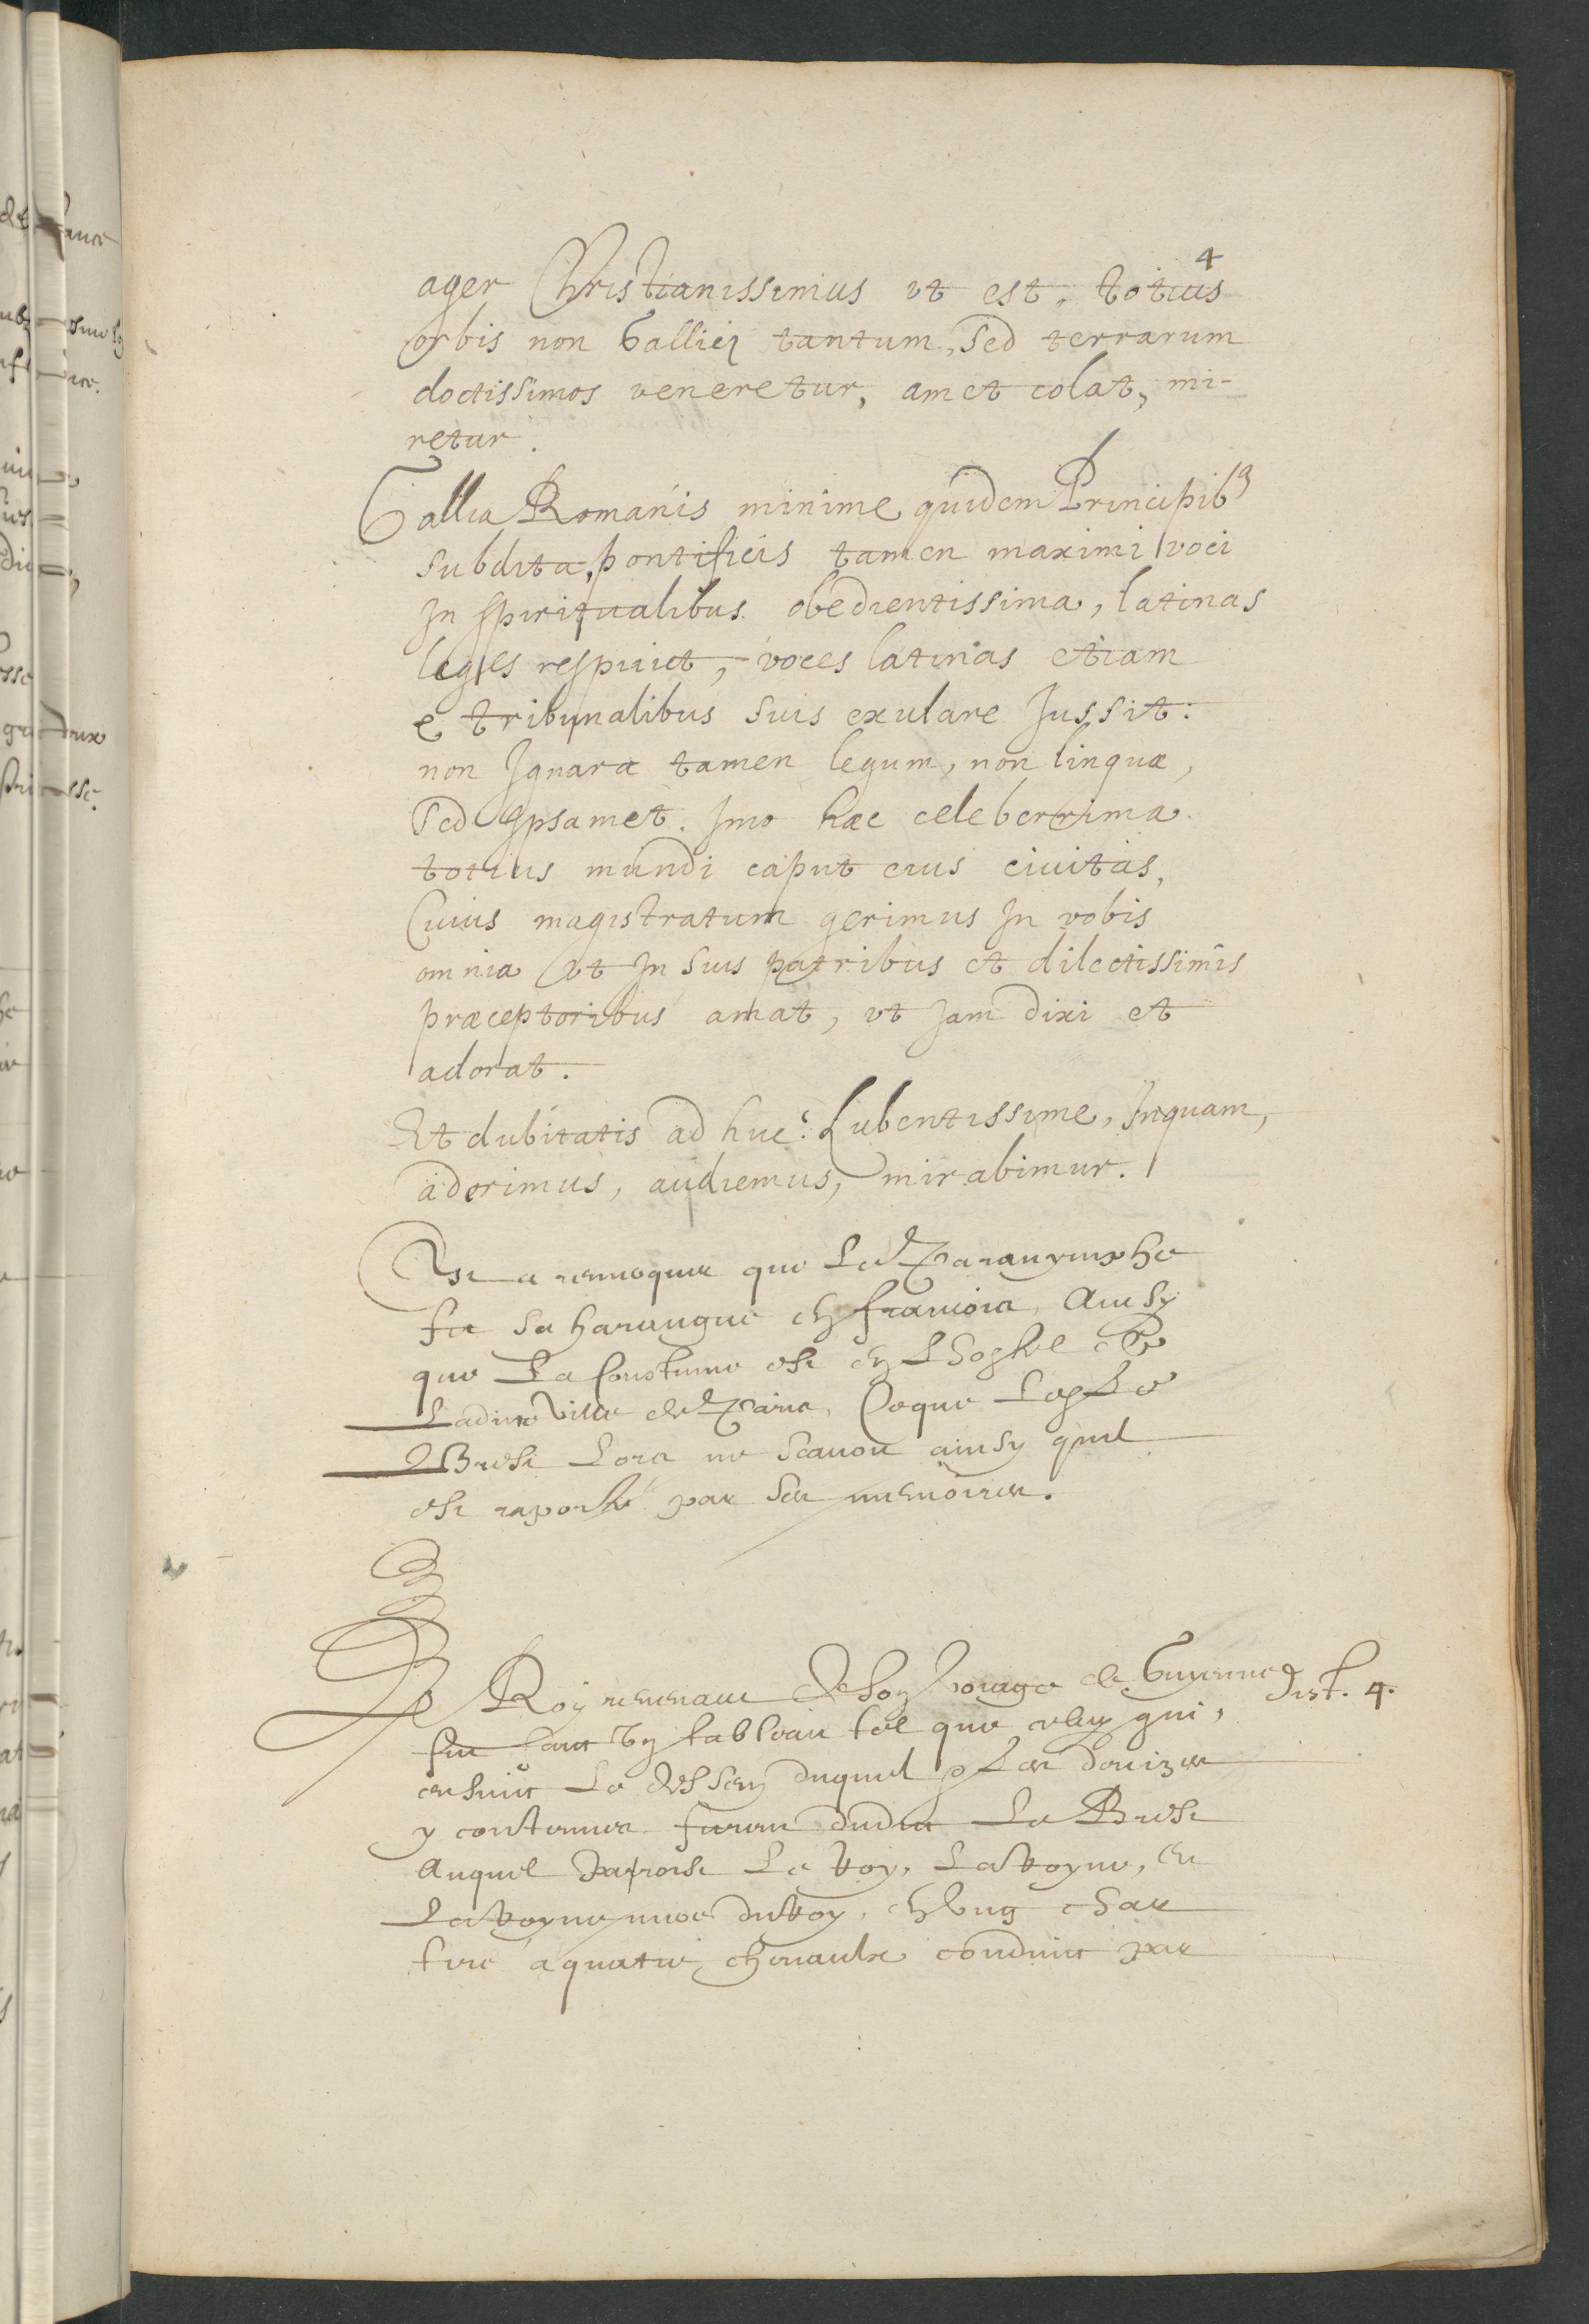 4
ager Christianissimus vt est, totius
orbis non Gallici tantum, Sed terrarum
doctissimos veneretur, amet colat, mi-
retur.
Gallia Romanis minime quidem Principibꝰ
subdita, pontificis tamen maximi voci
In spiritualibus obedientissima, latinas
leges respuit, voces latinas etiam
e tribunalibus suis exulare Jussit:
non Ignara tamen legum, non linguæ,
Sed Ipsamet. Imo hæc celeberrima
totius mundi caput eius ciuitas,
Cuius magistratum gerimus In vobis
omnia vt In suis patribus et dilectissimis
præceptoribus amat, vt Jam dixi et
adorat.
Et dubitatis ad huc? Lubentissime, Inquam,
aderimus, audiemus, mirabimur.
Est a remerquer que Le Paranymphe
fit sa harangue en francois, Ainsy
que La Coustume est en L'hostel de
Ladicte Ville de Paris, Ce que Led. Sr
Brest Lors ne scauoit ainsy quil
est raporté par ses memoires.
Le Roy reuenant de son voiage de Guyenne
fut faict vn tableau tel que celuy qui,
ensuit Le dessein duquel & Les deuizes
y contenues furent dudit Le Brest
Auquel paroist Le Roy, La Royne, et
La Royne mere du Roy, en vng char
tiré a quatre cheuaulx conduict par
dist. 4.